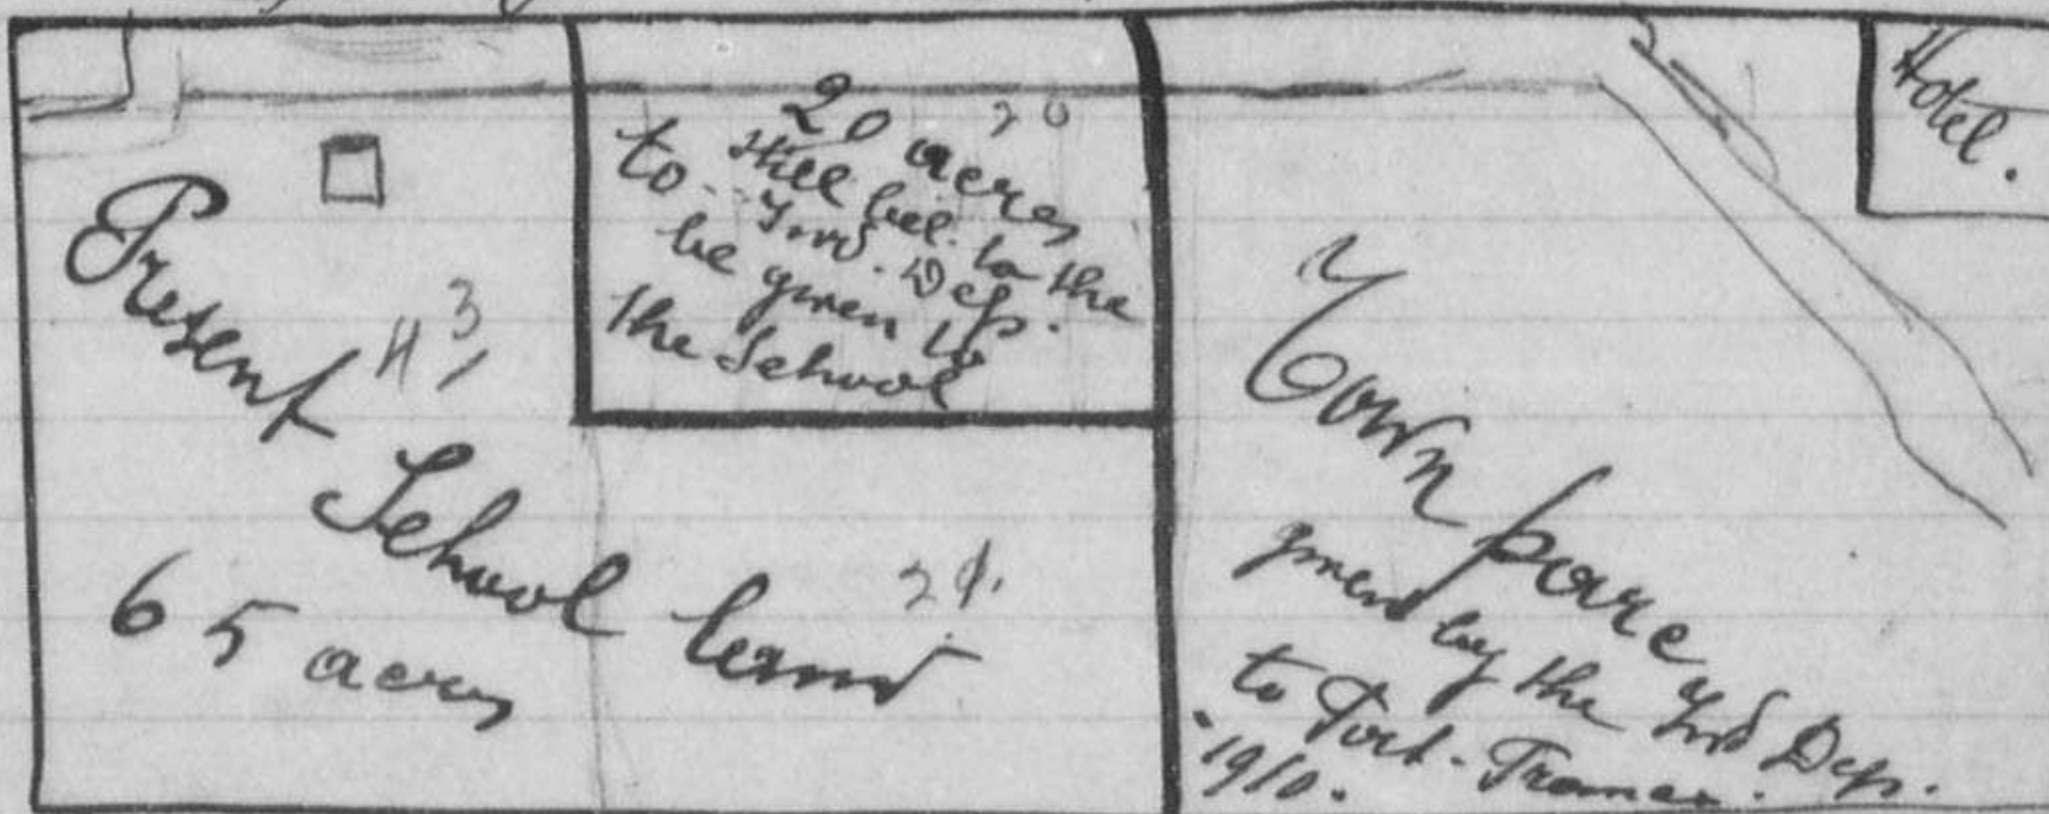 Present School land
65 acres
43
20 acres
20
still bel. to the
Ind. Dep.
to be given to
the School
21.
Town
given by the Ind Dep.
to Fort-Frances.
1910.
Hotel.